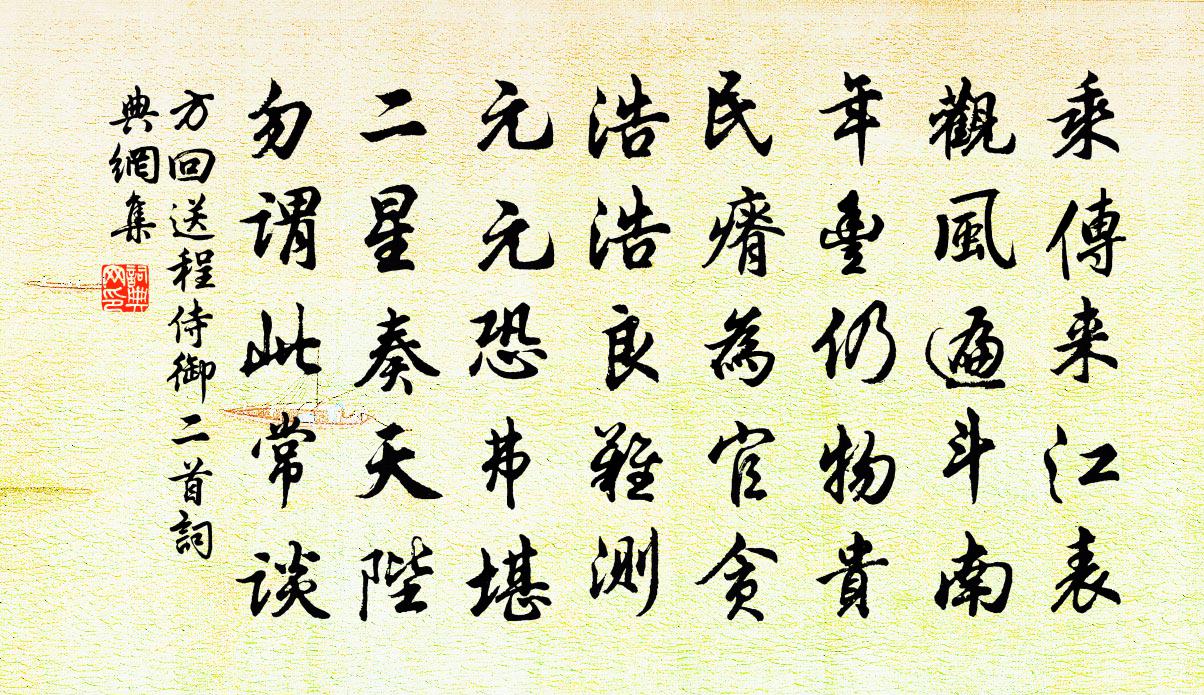 乘傳来江表
觀風遍斗南
年豊仍物貴
民瘠為官貪
浩浩良難測
元元恐弗堪
二星奏天陛
勿謂此常談
方回送程侍御二首詞
典網集
詞典
网印